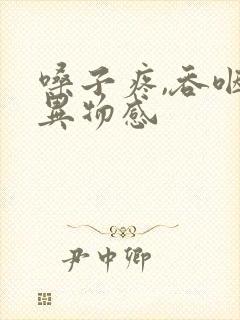 嗓子疼,吞咽
異物感
尹中卿